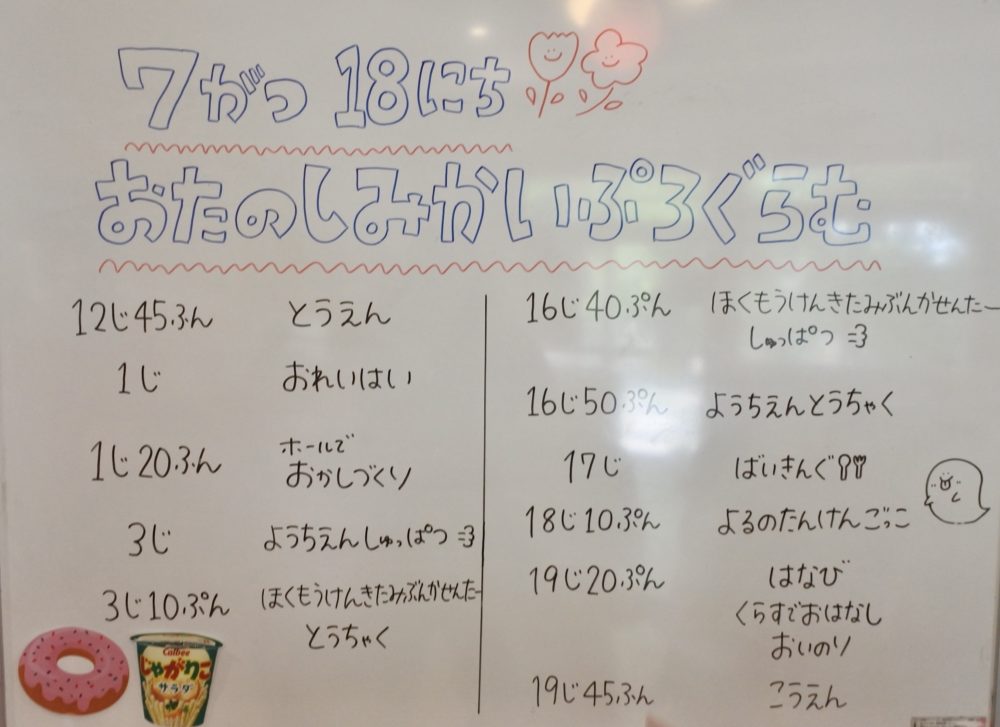 7がつ 18にち
おたのしみかい ぷろぐらむ
12じ45ふん とうえん
1じ おれいはい
1じ20ふん ホールで
おかしづくり
3じ ようちえんしゅっぱつ
3じ10ぷん ほくもうけんきたみぶんかせんたー
とうちゃく
Calbee
じゃがりこ
サラダ
16じ40ぷん ほくもうけんきたみぶんかせんたー
しゅっぱつ
16じ50ぷん ようちえんとうちゃく
17じ ばいきんぐ
18じ10ぷん よるのたんけんごっこ
19じ20ぷん はなび
くらすでおはなし
おいのり
19じ45ふん こうえん